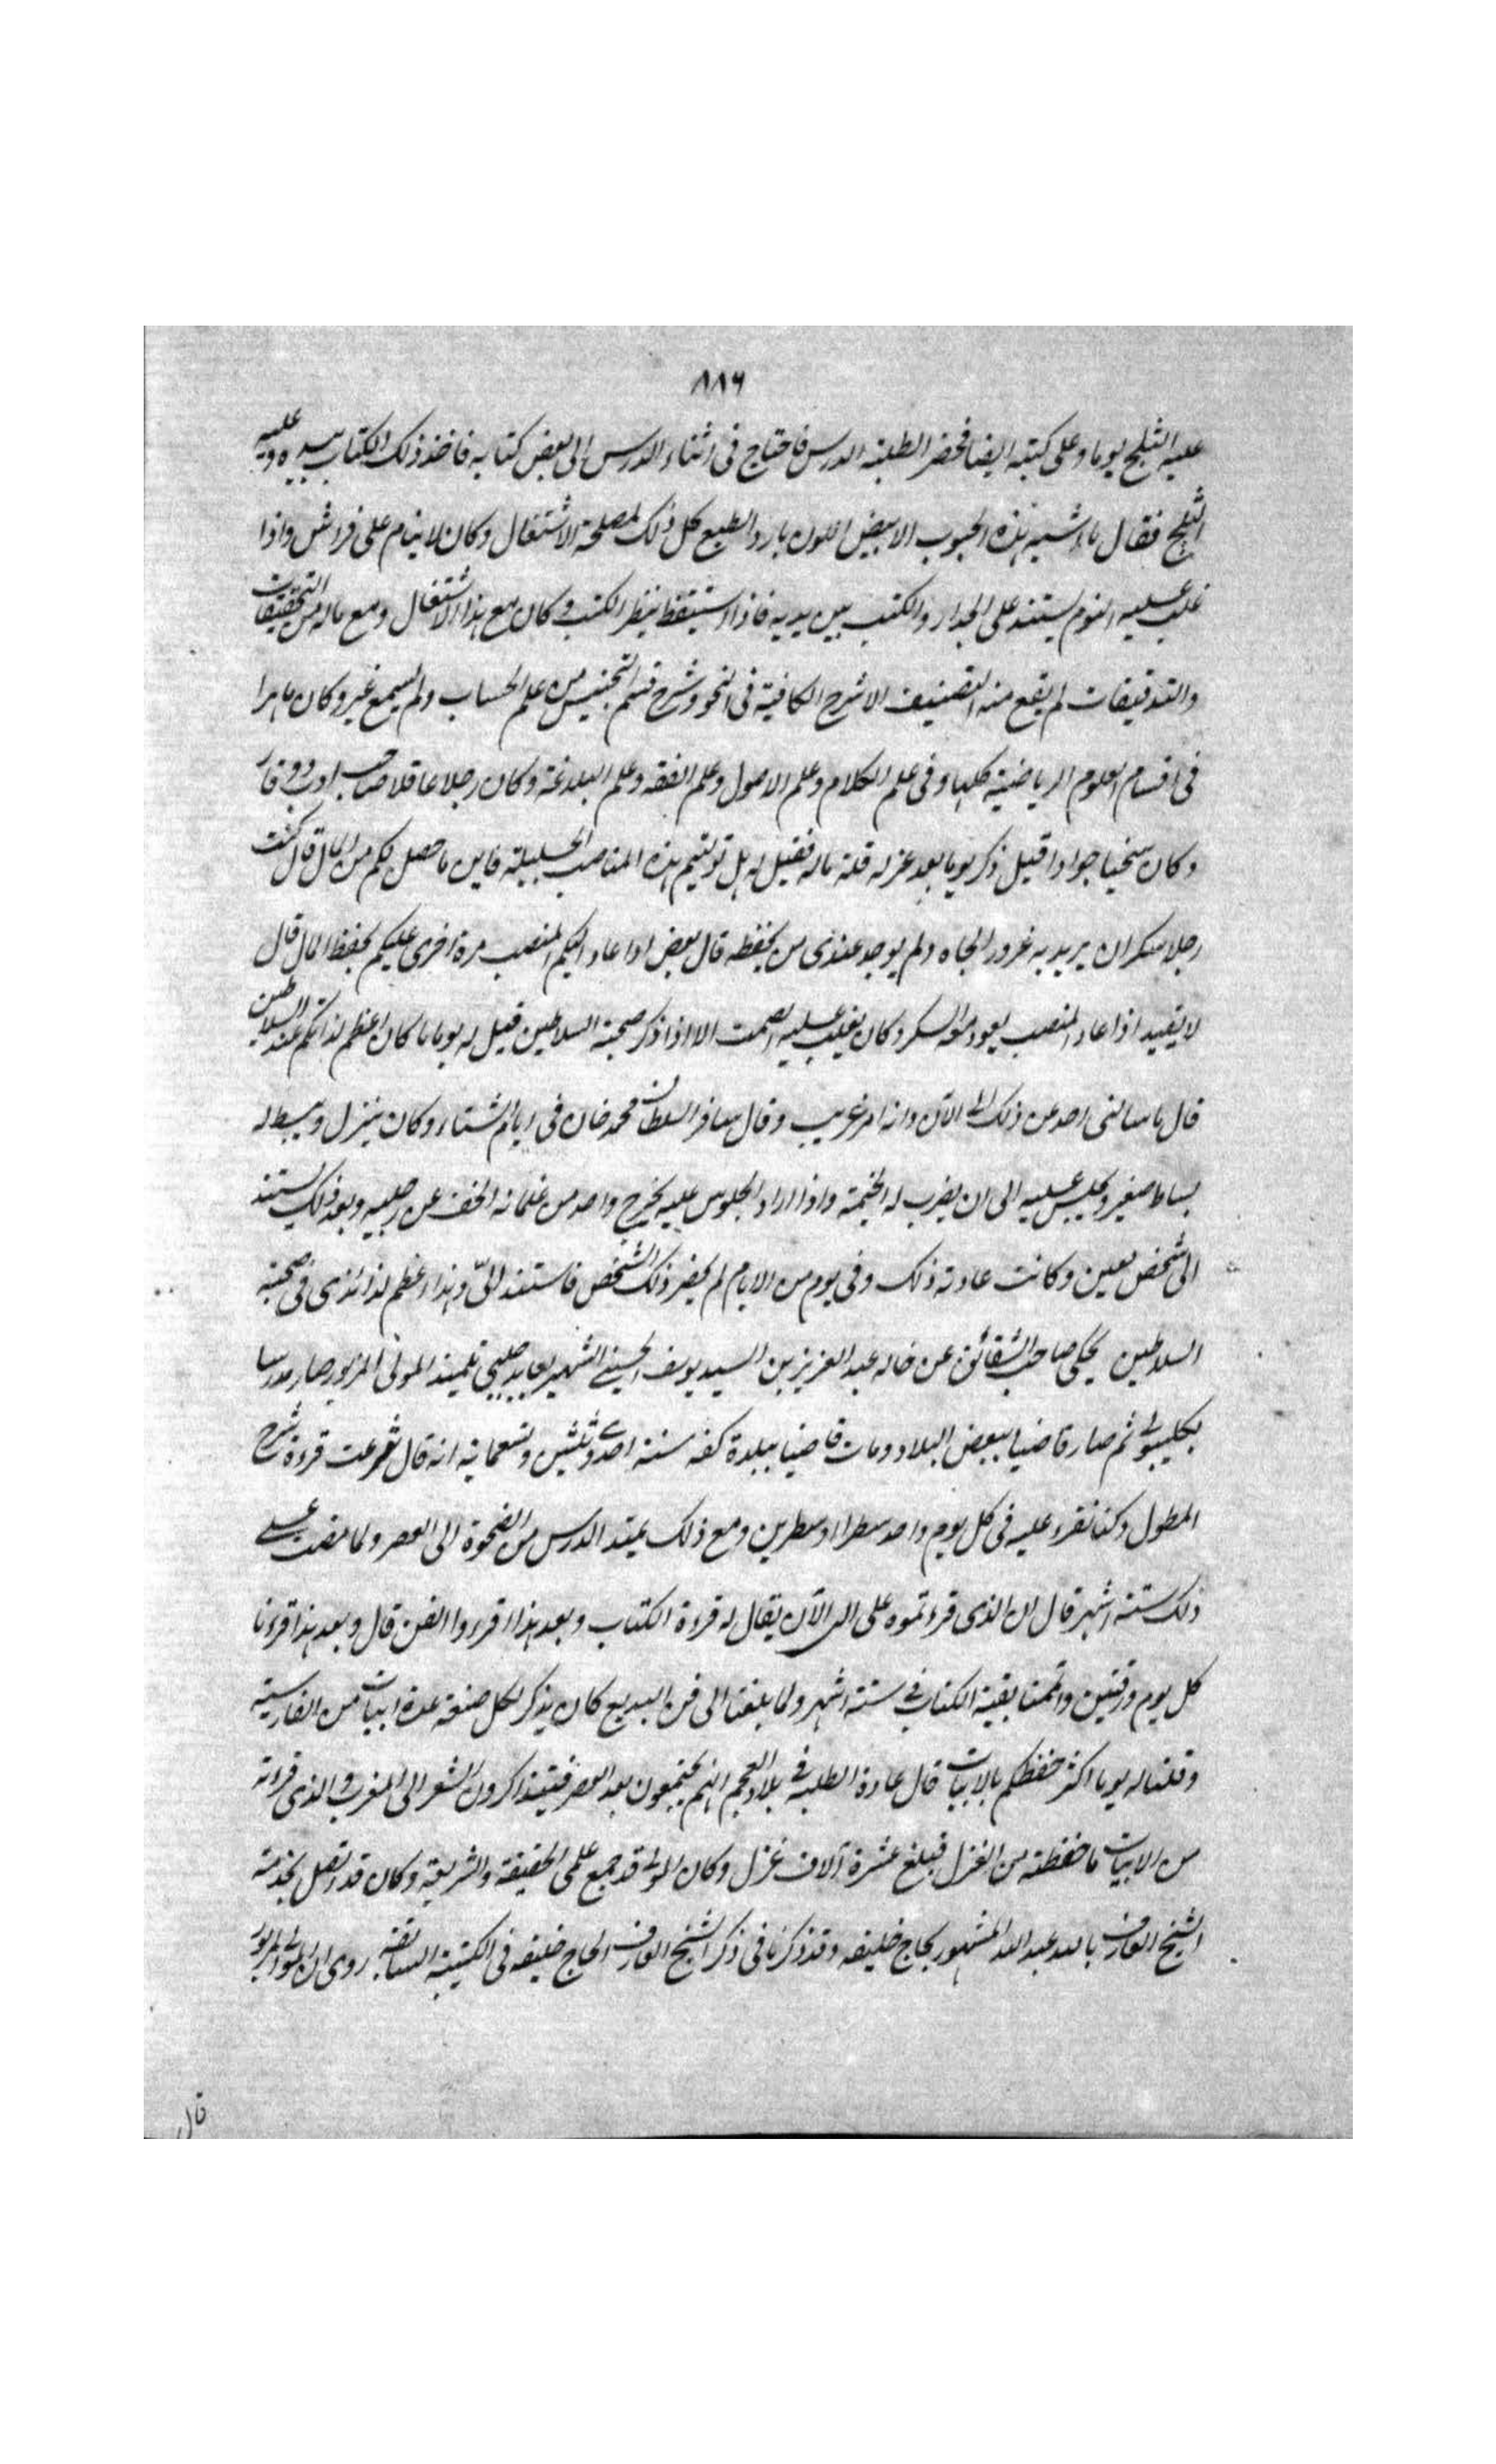 ٨٨٦
عليه الثلج يوما وعلى كتبه ايضا فحضر الطلبة الدرس فاحتاج فى اثناء الدرس الى بعض كتابه فاخذ ذلك الكتاب بيده وعليه
الثلج فقال ما اشبه هذه الحبوب الابيض اللون بارد الطبع كل ذلك لمصلحة الاشتغال وكان لا ينام على فراش واذا
غلب عليه النوم يستند على الجدار والكتب بين يديه فاذا استيقظ ينظر الكتب وكان مع هذا الاشتغال ومع ماله من التحقيقات
والتدقيقات لم يقع منه التصنيف الا شرح الكافية فى النحو وشرح قسم التجنيس من علم الحساب ولم يسمع غير وكان ماهرا
فى اقسام العلوم الرياضية كلها وفى علم الكلام وعلم الاصول وعلم الفقه وعلم البلاغة وكان رجلا عاقلا صاحب ادب ووقار
وكان سخيا جوادا قيل ذكر يوما بعد عزله قلة ماله فقيل له هل توليتم هذه المناصب الجليلة فاين ما حصل لكم من المال قال كنت
رجلا سكران يريد به غرور الجاه ولم يوجد عندى من يحفظه قال بعض اذا عاد اليكم المنصب مرة اخرى عليكم بحفظ المال قال
لا يفيد اذا عاد المنصب يعود معه السكر وكان يغلب عليه الصمت الا اذا ذكر صحبة السلاطين قيل له يوما ما كان اعظم لذائكم عند السلاطين
قال ما سالنى احد عن ذلك الى الآن وانه امر غريب وقال سافر السلطان محمد خان فى ايام الشتاء وكان ينزل ويبسط له
بساط صغير ويجلس عليه الى ان يضرب له الخيمة واذا اراد الجلوس عليه يخرج واحد من غلمانه الخف عن رجليه وبعد ذلك يستند
الى شخص معين وكانت عادته ذلك وفى يوم من الايام لم يحضر ذلك الشخص فاستند الىّ وهذا اعظم لذائذى فى صحبة
السلاطين يحكى صاحب الشقائق عن خاله عبد العزيز بن السيد يوسف الحسينى الشهير بعابد چلبى تلميذ المولى المزبور صار مدرسا
بكليبولى ثم صار قاضيا ببعض البلاد ومات قاضيا ببلدة كفه سنة احدى وثلثين وتسعمائة انه قال شرعت قرءة شرح
المطول وكنا نقرء عليه فى كل يوم واحد سطرا او سطرين ومع ذلك يمتد الدرس من الضحوة الى العصر ولما مضت على
ذلك ستة اشهر قال ان الذى قرءتموه على الى الآن يقال له قرءة الكتاب وبعد هذا اقرءوا الفن قال وبعد هذا قرءنا
كل يوم ورقتين واتممنا بقية الكتاب فى ستة اشهر ولما بلغنا الى فن البديع كان يذكر لكل صنعة عدة ابيات من الفارسية
وقلنا له يوما اكثر حفظكم بالابيات قال عادة الطلبة فى بلاد العجم انهم يجتمعون بعد العصر فيتذاكرون الشعر الى المغرب والذى قرءته
من الابيات ما حفظته من الغزل فبلغ عشرة آلاف غزل وكان المولى قد جمع علمى الحقيقة والشريعة وكان قد اتصل بخدمة
الشيخ العارف بالله عبد الله المشهور بحاج خليفه وقد ذكرنا فى ذكر الشيخ العارف الحاج خليفه فى الكتيبة السابقة روى ان المولى المزبور
قال